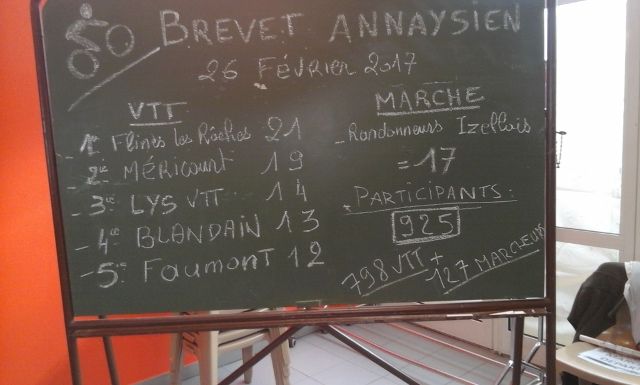 BREVET ANNAYSIEN
26 FÉVRIER 2017
VTT
- 1er Flines les Râches 21
- 2e MÉRICOURT 19
- 3e LYS VTT 14
- 4e BLANDAIN 13
- 5e Faumont 12
MARCHE
- Randonneurs Izellois
= 17
PARTICIPANTS :
925
798 VTT + 127 MARCHEURS